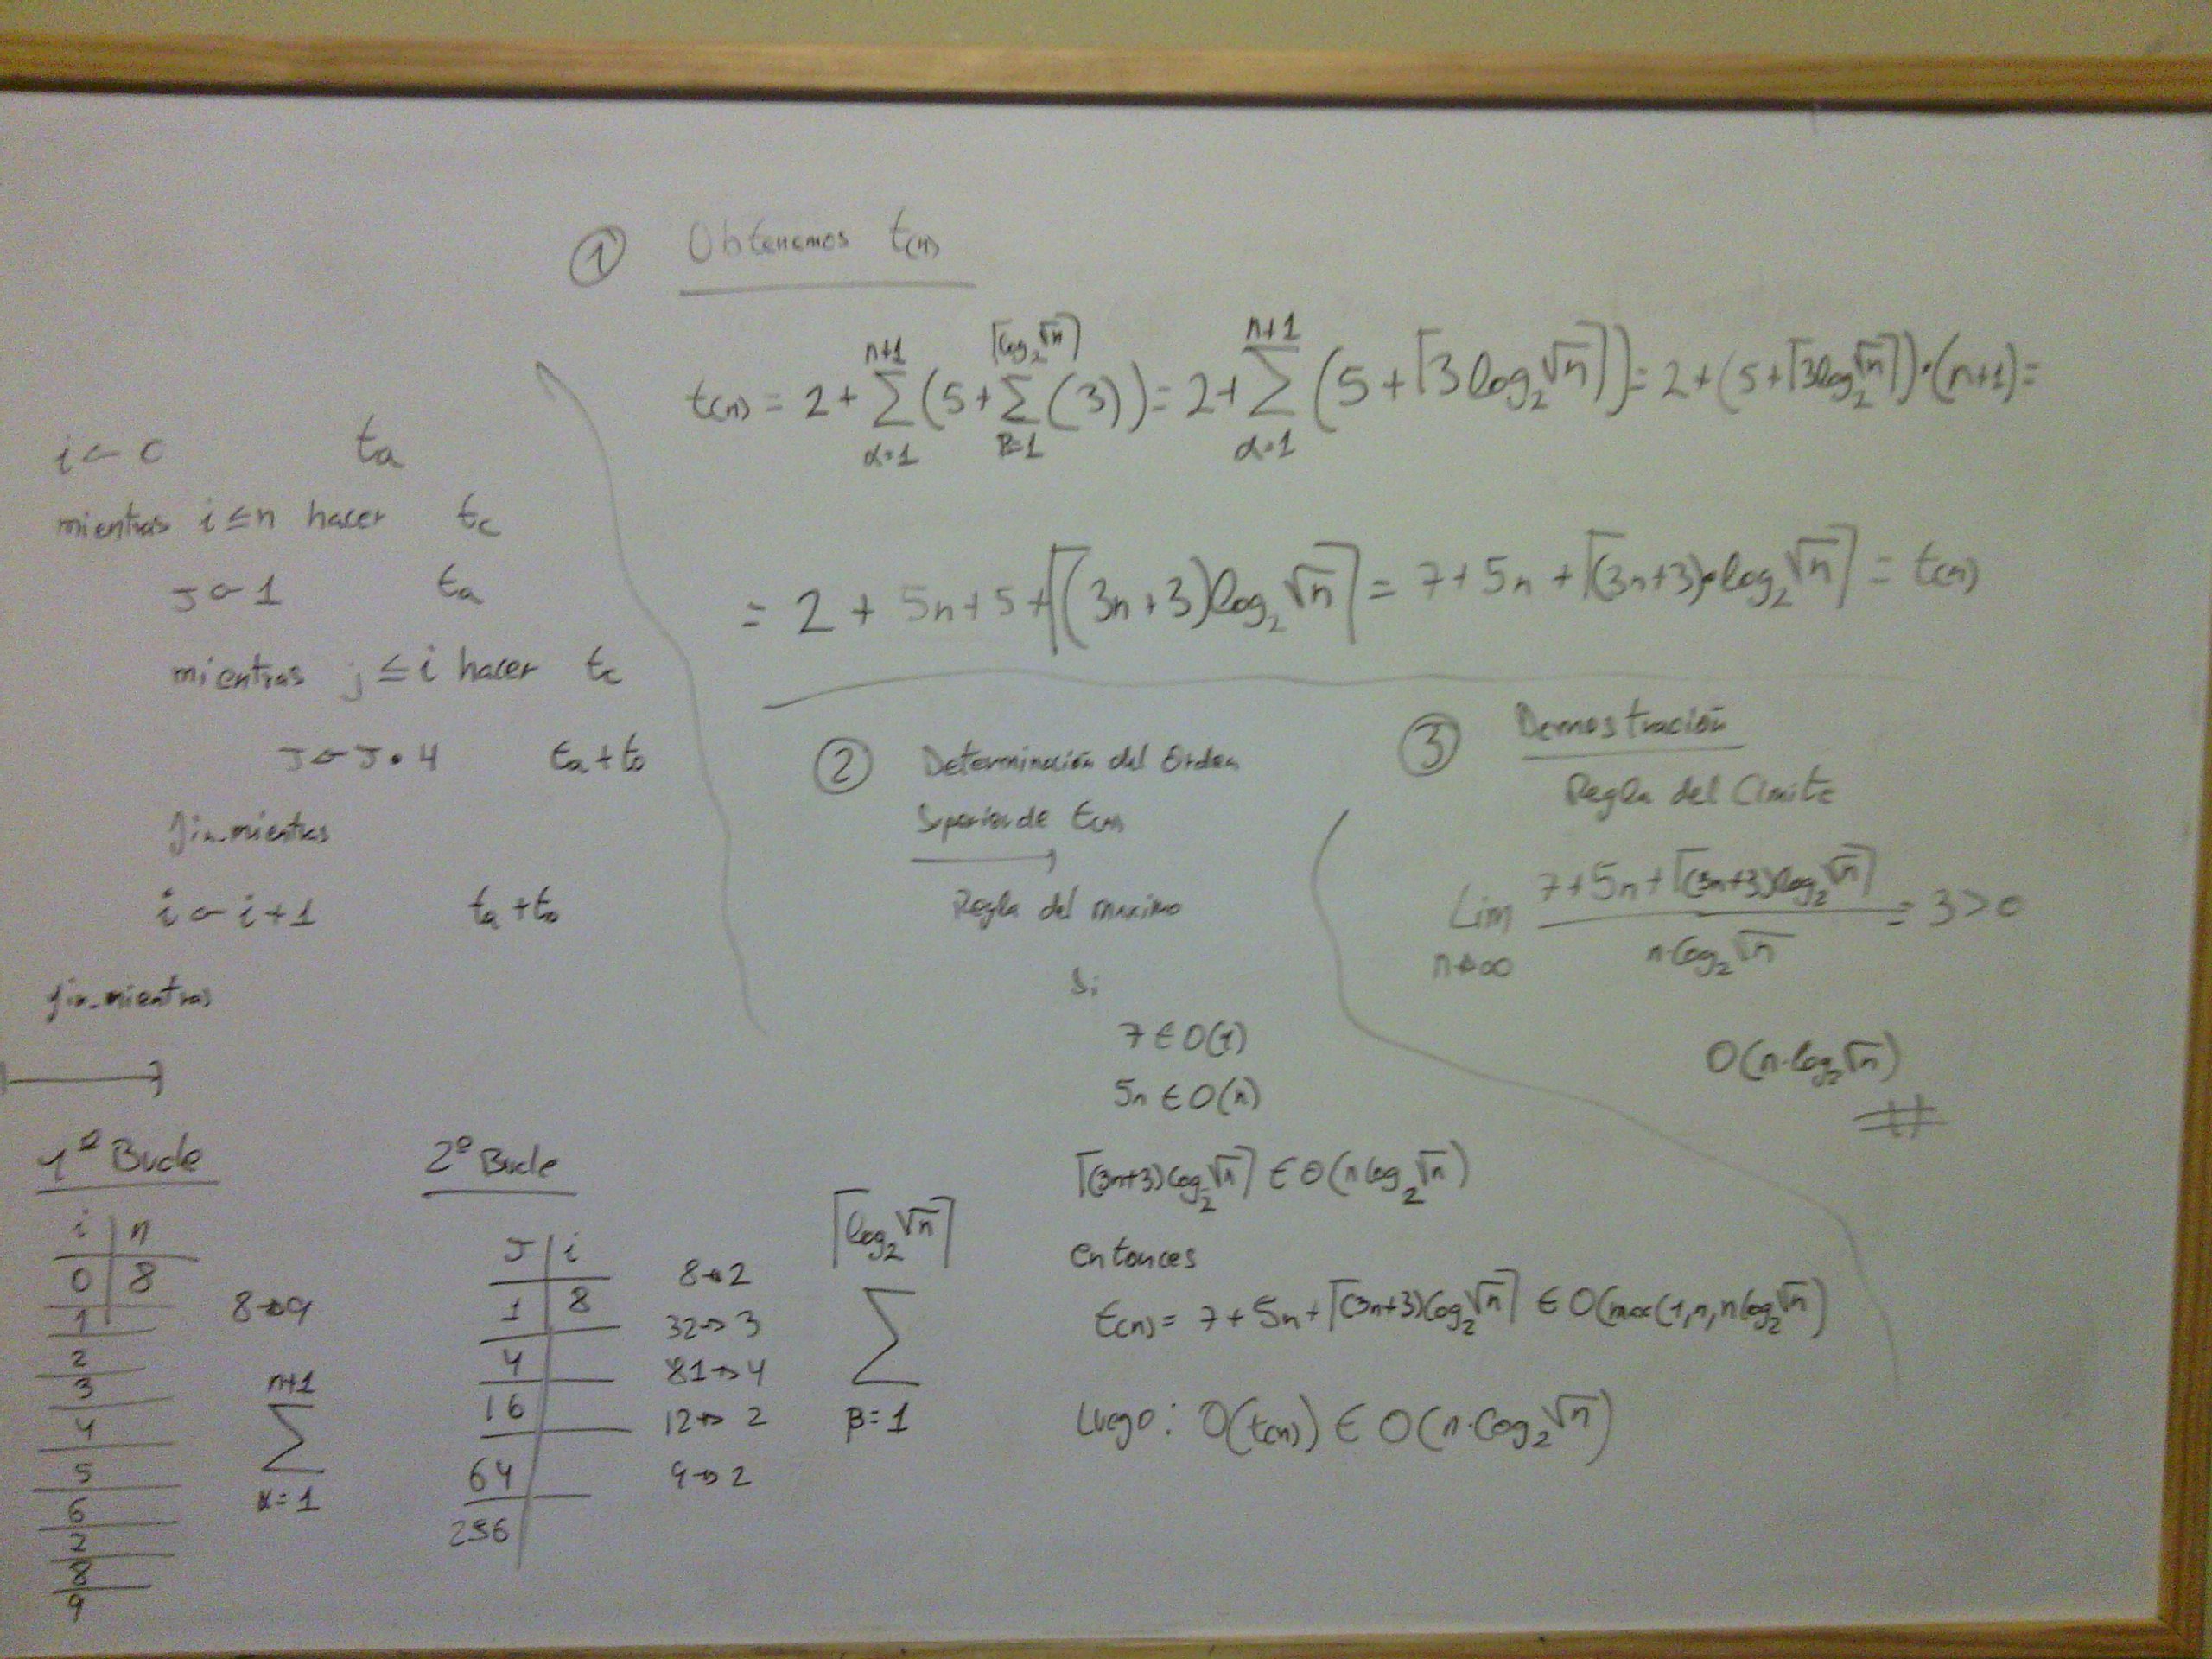 i ← 0 ta
mientras i ≤ n hacer tc
J ← 1 ta
mientras j ≤ i hacer tc
J ← J • 4 ta + to
fin_mientras
i ← i + 1 ta + to
fin_mientras
1º Bucle
i | n
0 | 8
1
2
3
4
5
6
7
8
9
8 → 9
n+1
∑
α = 1
2º Bucle
J | i
1 | 8
4
16
64
256
8 → 2
32 → 3
81 → 4
12 → 2
9 → 2
⌈log₂√n⌉
∑
β = 1
① Obtenemos t(n)
t(n) = 2 + ∑_{α=1}^{n+1} (5 + ∑_{β=1}^{⌈log₂√n⌉} (3)) = 2 + ∑_{α=1}^{n+1} (5 + ⌈3log₂√n⌉) = 2 + (5 + ⌈3log₂√n⌉) • (n+1) =
= 2 + 5n + 5 + ⌈(3n+3)log₂√n⌉ = 7 + 5n + ⌈(3n+3) • log₂√n⌉ = t(n)
② Determinación del Orden
Superior de t(n)
Regla del maximo
Si
7 ∈ O(1)
5n ∈ O(n)
⌈(3n+3)log₂√n⌉ ∈ O(n log₂√n)
entonces
t(n) = 7 + 5n + ⌈(3n+3)log₂√n⌉ ∈ O(max(1, n, n log₂√n)
Luego: O(t(n)) ∈ O(n·log₂√n)
③ Demostración
Regla del Limite
Lim_{n→∞} (7 + 5n + ⌈(3n+3)log₂√n⌉) / (n·log₂√n) = 3 > 0
O(n·log₂√n)